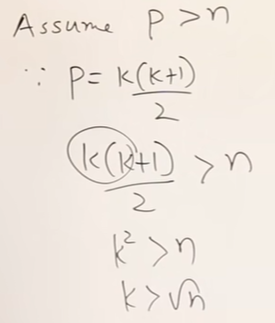 Assume p > n
∵ p = k(k+1)/2
k(k+1)/2 > n
k² > n
k > √n